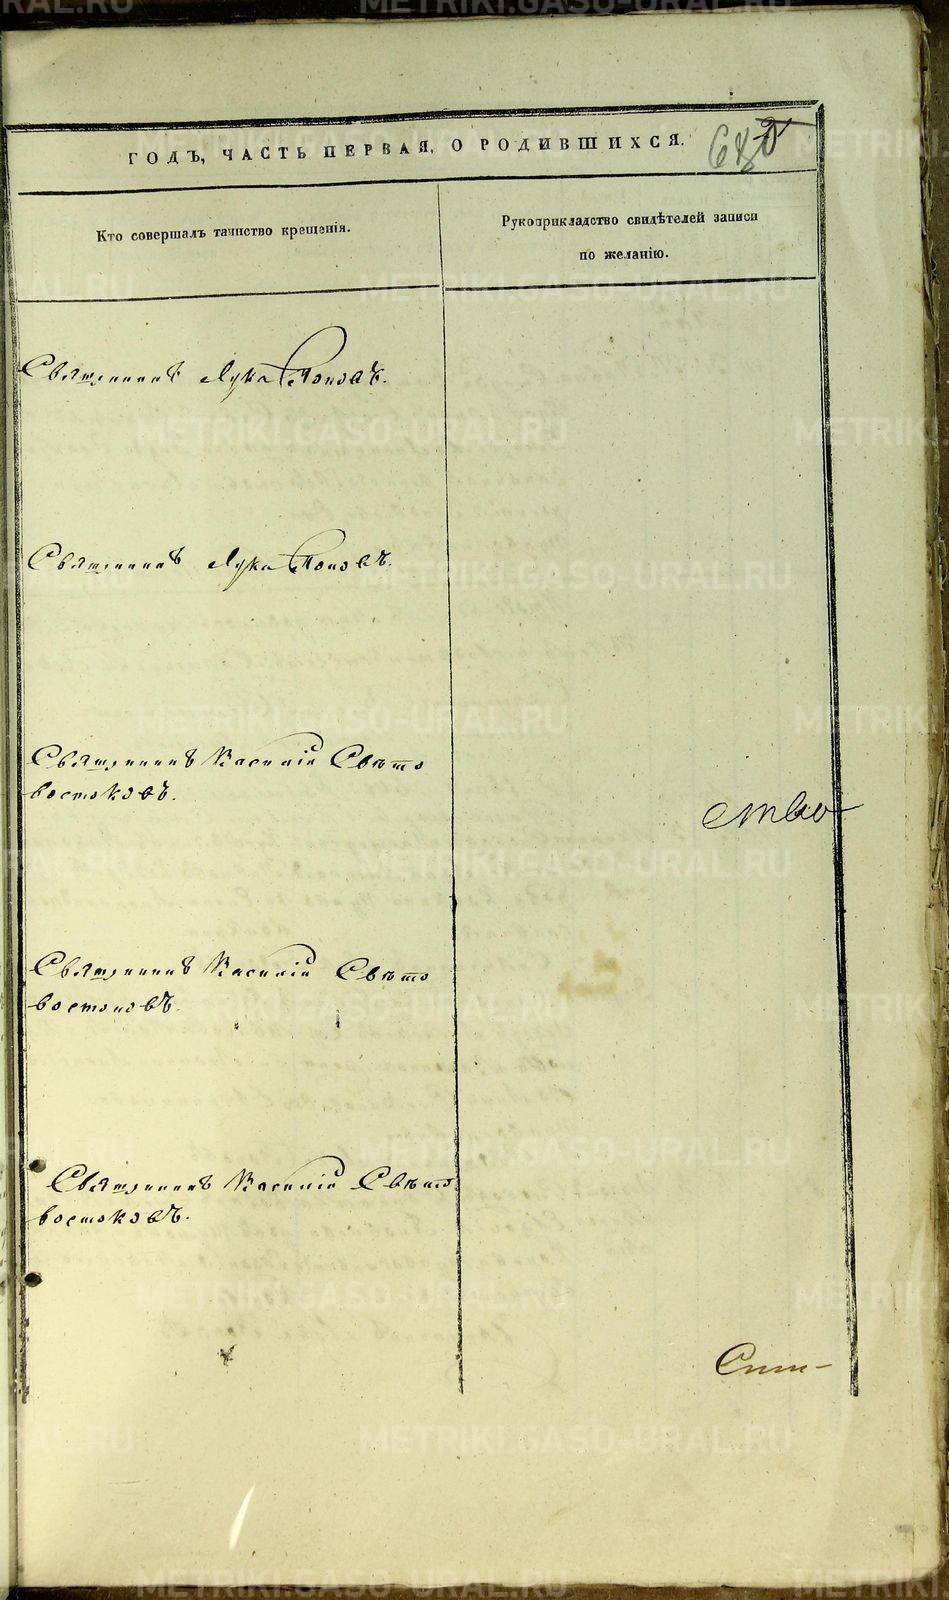 ГОДЪ, ЧАСТЬ ПЕРВАЯ, О РОДИВШИХСЯ.
Кто совершалъ таинство крещенія.
Рукоприкладство свидѣтелей записи
по желанію.
Священникъ Лука Поповъ.
Священникъ Лука Поповъ.
Священникъ Василій Свѣто
востоковъ.
ство
Священникъ Василій Свѣто
востоковъ.
Священникъ Василій Свѣто
востоковъ.
METRIKI.GASO-URAL.RU